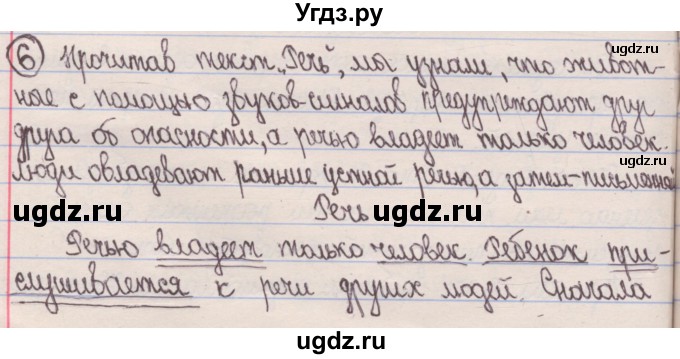 Угдз.ру
⑥ Прочитав текст „Речь", мы узнали, что живот-
ugdz.ru
ные с помощью звуков-сигналов предупреждают друг
ugdz.ru ugdz.ru
друга об опасности, а речью владеет только человек.
люди овладевают раньше устной речью, а затем-письменной
ugdz.ru ugdz.ru
Речь
Речью владеет только человек. Ребенок при-
ugdz.ru ugdz.ru
слушивается к речи других людей. Сначала